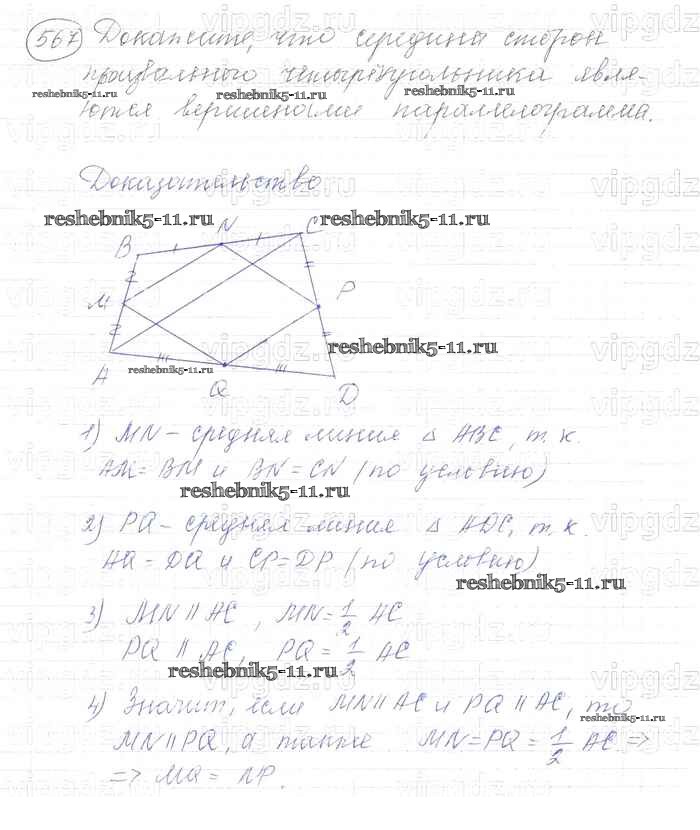 567 Докажите, что середины сторон
произвольного четырёхугольника явля-
reshebnik5-11.ru reshebnik5-11.ru reshebnik5-11.ru
ются вершинами параллелограмма.
Доказательство
reshebnik5-11.ru reshebnik5-11.ru
B N C
M P
reshebnik5-11.ru
A reshebnik5-11.ru
Q D
1) MN – средняя линия △ ABC, т.к.
AM = BM и BN = CN (по условию)
reshebnik5-11.ru
2) PQ – средняя линия △ ADC, т.к.
AQ = DQ и CP = DP (по условию)
reshebnik5-11.ru
3) MN || AC, MN = 1/2 AC
PQ || AC, PQ = 1/2 AC
reshebnik5-11.ru
4) Значит, если MN || AC и PQ || AC, то
reshebnik5-11.ru
MN || PQ, а также MN = PQ = 1/2 AC =>
=> MQ = NP.